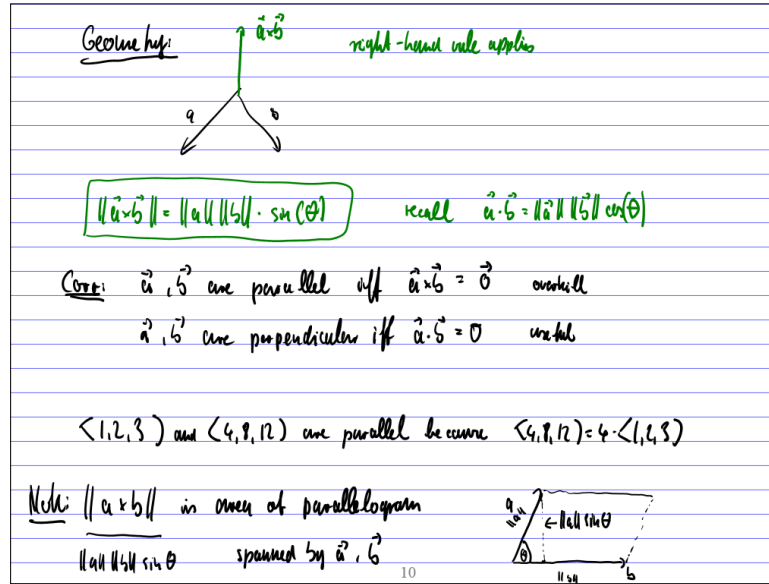 Geometry: a⃗×b⃗ right-hand rule applies
a b
||a⃗×b⃗|| = ||a|| ||b|| · sin(θ) recall a⃗·b⃗ = ||a⃗|| ||b⃗|| cos(θ)
Corr: a⃗, b⃗ are parallel iff a⃗×b⃗ = 0⃗ overkill
a⃗, b⃗ are perpendicular iff a⃗·b⃗ = 0 useful
<1,2,3> and <4,8,12> are parallel because <4,8,12> = 4·<1,2,3>
Note: ||a×b|| is area of parallelogram
||a|| ||b|| sin θ spanned by a⃗, b⃗
a ||a|| ← ||a|| sin θ
θ
||b|| b
10